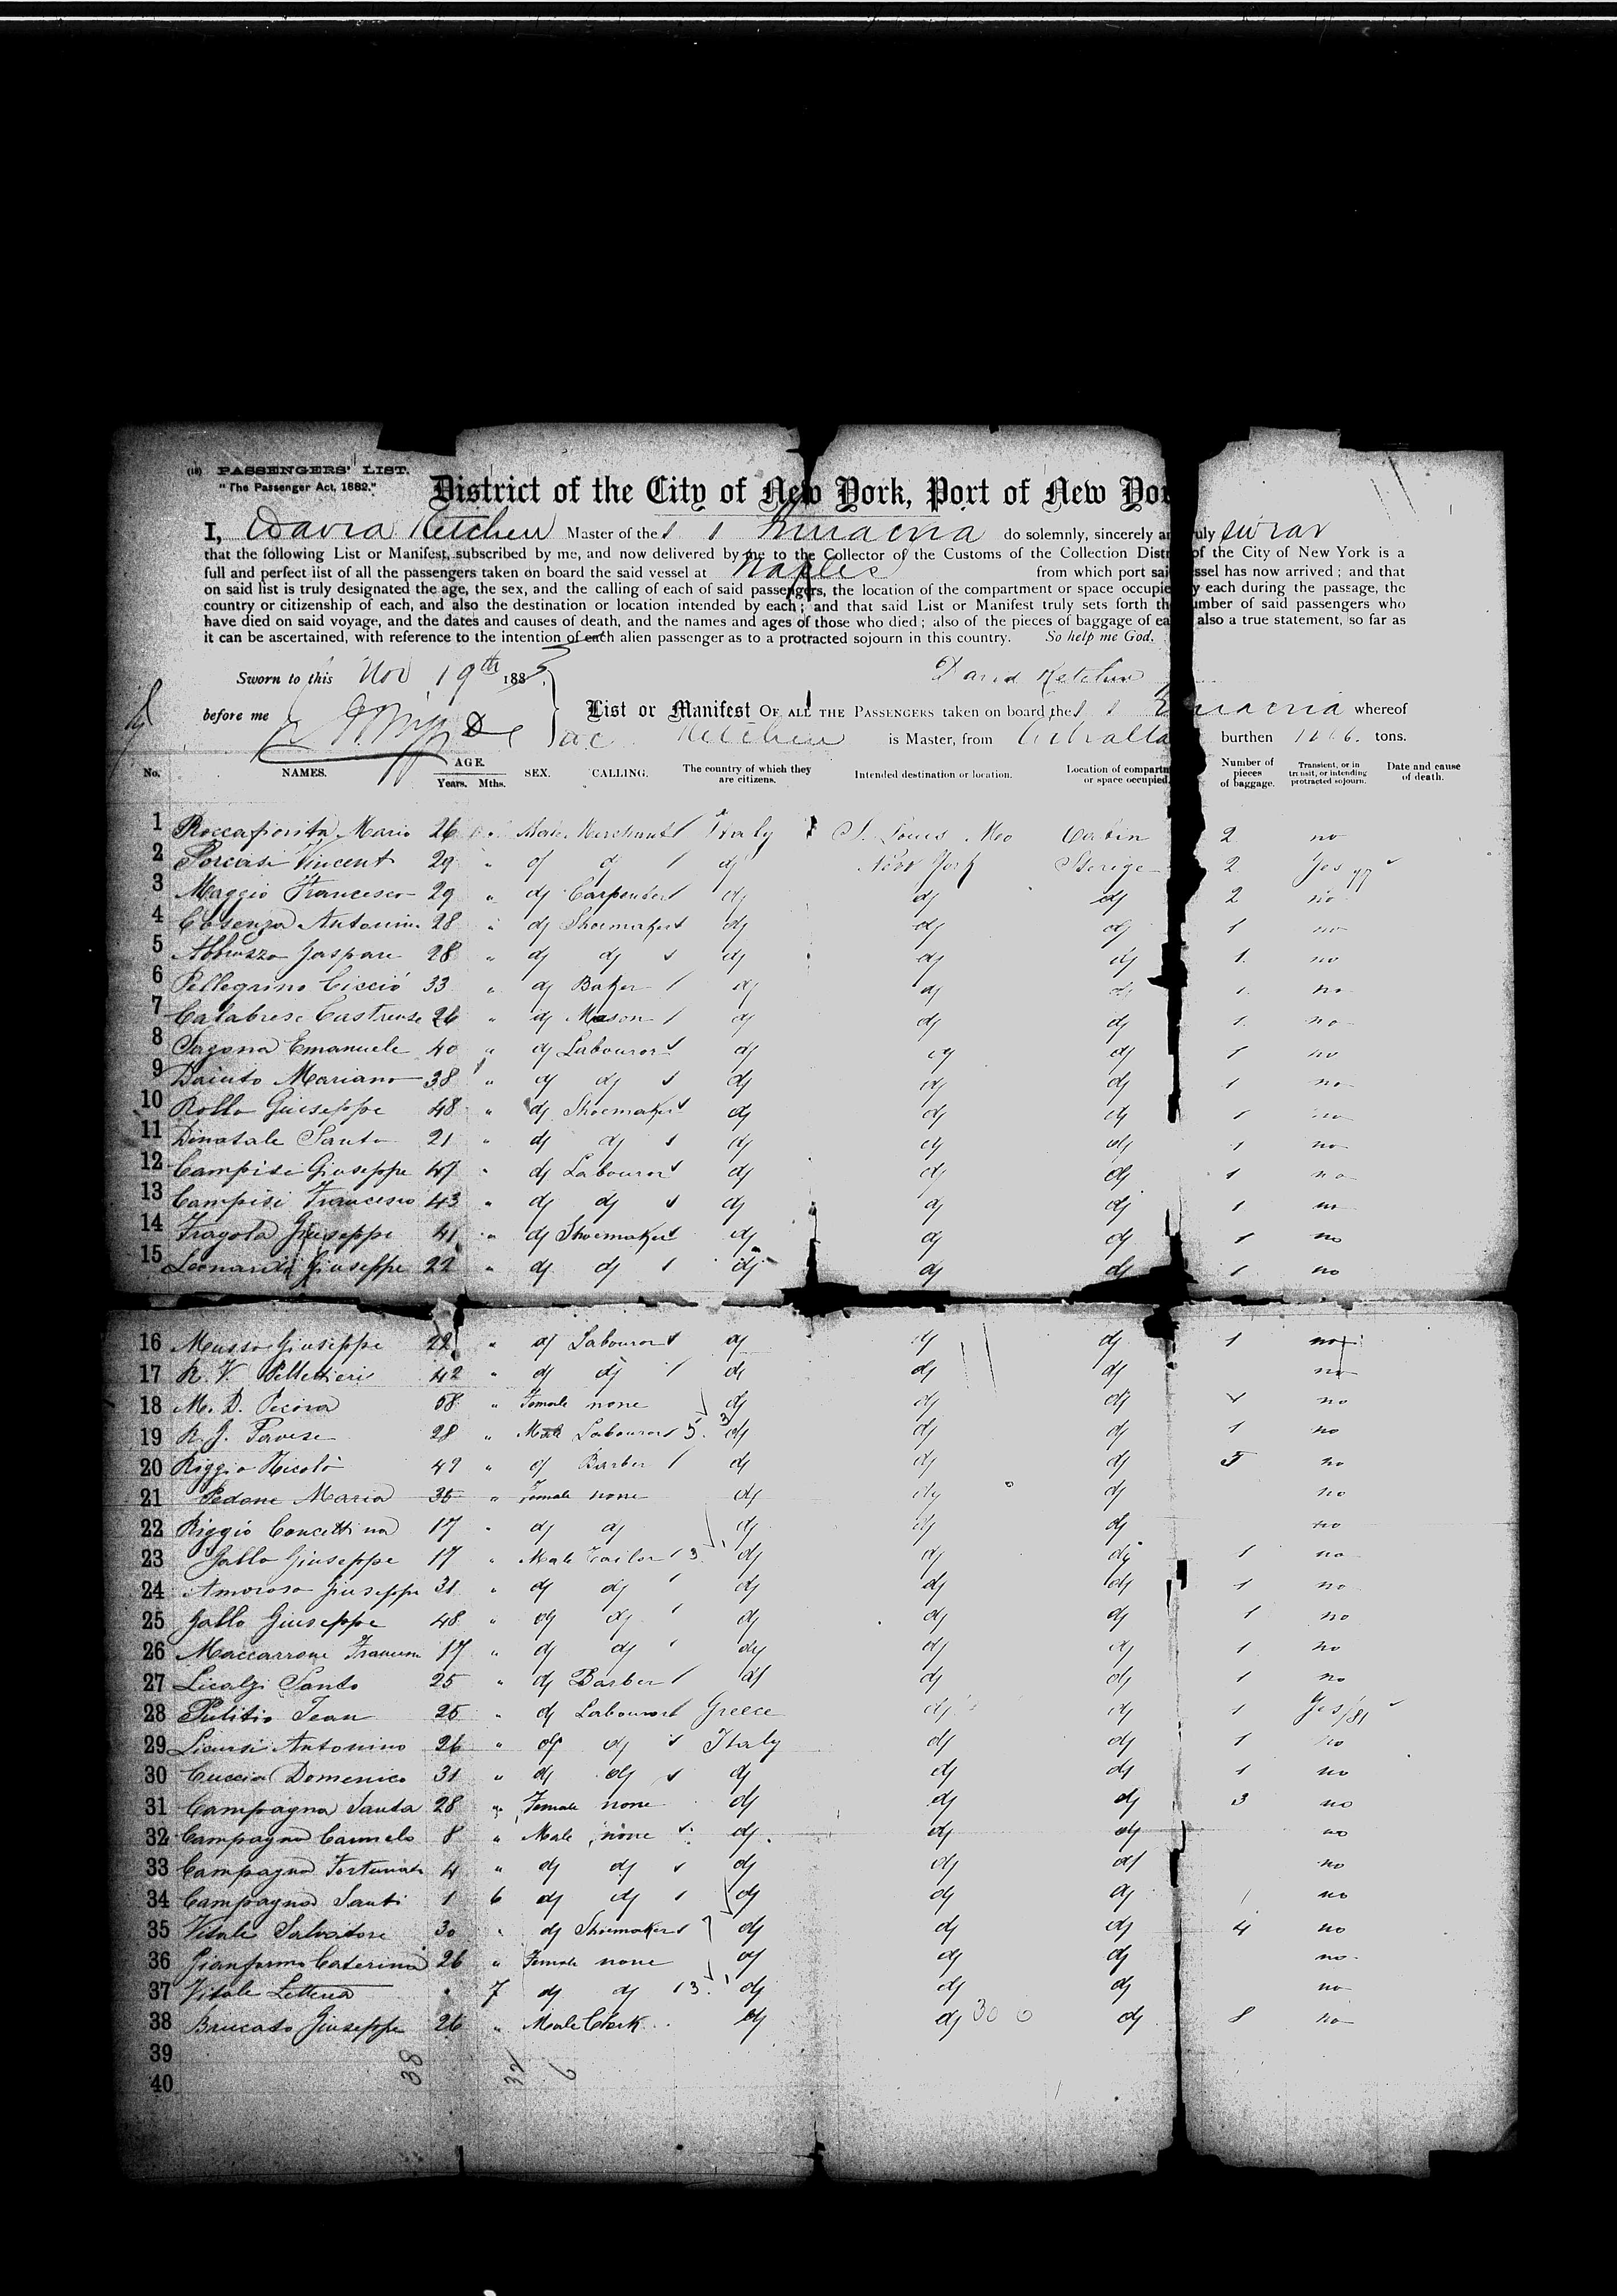 (18) PASSENGERS' LIST.
"The Passenger Act, 1882."
District of the City of New York, Port of New Yor
I, David Ketchen Master of the S S do solemnly, sincerely an ruly swear
that the following List or Manifest, subscribed by me, and now delivered by me to the Collector of the Customs of the Collection Distr of the City of New York is a
full and perfect list of all the passengers taken on board the said vessel at Naples from which port sai essel has now arrived; and that
on said list is truly designated the age, the sex, and the calling of each of said passengers, the location of the compartment or space occupie y each during the passage, the
country or citizenship of each, and also the destination or location intended by each; and that said List or Manifest truly sets forth th umber of said passengers who
have died on said voyage, and the dates and causes of death, and the names and ages of those who died; also of the pieces of baggage of ea also a true statement, so far as
it can be ascertained, with reference to the intention of each alien passenger as to a protracted sojourn in this country. So help me God.
Sworn to this Nov 19th 188 David Ketchen
before me List or Manifest OF ALL THE PASSENGERS taken on board the S S whereof
Ketchen is Master, from burthen tons.
No. NAMES. AGE. Years. Mths. SEX. CALLING. The country of which they are citizens. Intended destination or location. Location of compartm or space occupied. Number of pieces of baggage. Transient, or in transit, or intending protracted sojourn. Date and cause of death.
1 Roccafiorita Mario 26 " Male Merchant Italy St. Louis Mo Cabin 2 no
2 Porcasi Vincent 29 " dj dj dj New York Sterige 2 Yes
3 Maggio Francesco 29 " dj Carpenter dj dj dj 2 no
4 Cosenza Antonino 28 " dj Shoemaker dj dj dj 1 no
5 Abbruzzo Gaspare 28 " dj dj dj dj dj 1 no
6 Pellegrino Ciccio 33 " dj Baker dj dj dj 1 no
7 Calabrese Castrense 26 " dj Mason dj dj dj 1 no
8 Sagona Emanuele 40 " dj Labourer dj dj dj 1 no
9 Mariano 38 " dj dj dj dj dj 1 no
10 Rollo Giuseppe 48 " dj Shoemaker dj dj dj 1 no
11 Dinatale Santo 21 " dj dj dj dj dj 1 no
12 Campisi Giuseppe 47 " dj Labourer dj dj dj 1 no
13 Campisi Francesco 43 " dj dj dj dj dj 1 no
14 Fragola Giuseppe 41 " dj Shoemaker dj dj dj 1 no
15 Leonardi Giuseppe 22 " dj dj dj dj dj 1 no
16 Musso Giuseppe 22 " dj Labourer dj dj dj 1 no
17 R. V. Pellettieri 42 " dj dj dj dj dj no
18 M. D. Pecora 58 " Female none dj dj dj no
19 R. J. Pavese 28 " Male Labourer 5 3 dj dj dj 1 no
20 Riggio Nicolò 49 " dj Barber dj dj dj 5 no
21 Pedone Maria 35 " Female none dj dj dj no
22 Riggio Concettina 17 " dj dj dj dj dj no
23 Gallo Giuseppe 17 " Male Tailor 3 dj dj dj 1 no
24 Amoroso Giuseppe 31 " dj dj dj dj dj 1 no
25 Gallo Giuseppe 48 " dj dj dj dj dj 1 no
26 Maccarrone 17 " dj dj dj dj dj 1 no
27 Licalzi Santo 25 " dj Barber dj dj dj 1 no
28 Jean 25 " dj Labourer Greece dj dj 1 Yes /81
29 Licursi Antonino 26 " dj dj Italy dj dj 1 no
30 Cuccia Domenico 31 " dj dj dj dj dj 1 no
31 Campagna Santa 28 " Female none dj dj dj 3 no
32 Campagna Carmelo 8 " Male none dj dj dj no
33 Campagna Fortunato 4 " dj dj dj dj dj no
34 Campagna Santi 1 6 dj dj dj dj dj no
35 Vitale Salvatore 30 " dj Shoemaker dj dj dj 4 no
36 Gianformo Caterina 26 " Female none dj dj dj no
37 Vitale Letteria " 7 dj dj 3 dj dj dj no
38 Brucato Giuseppe 26 " Male Clerk dj dj 30 0 dj 8 no
39
40
38 32 6